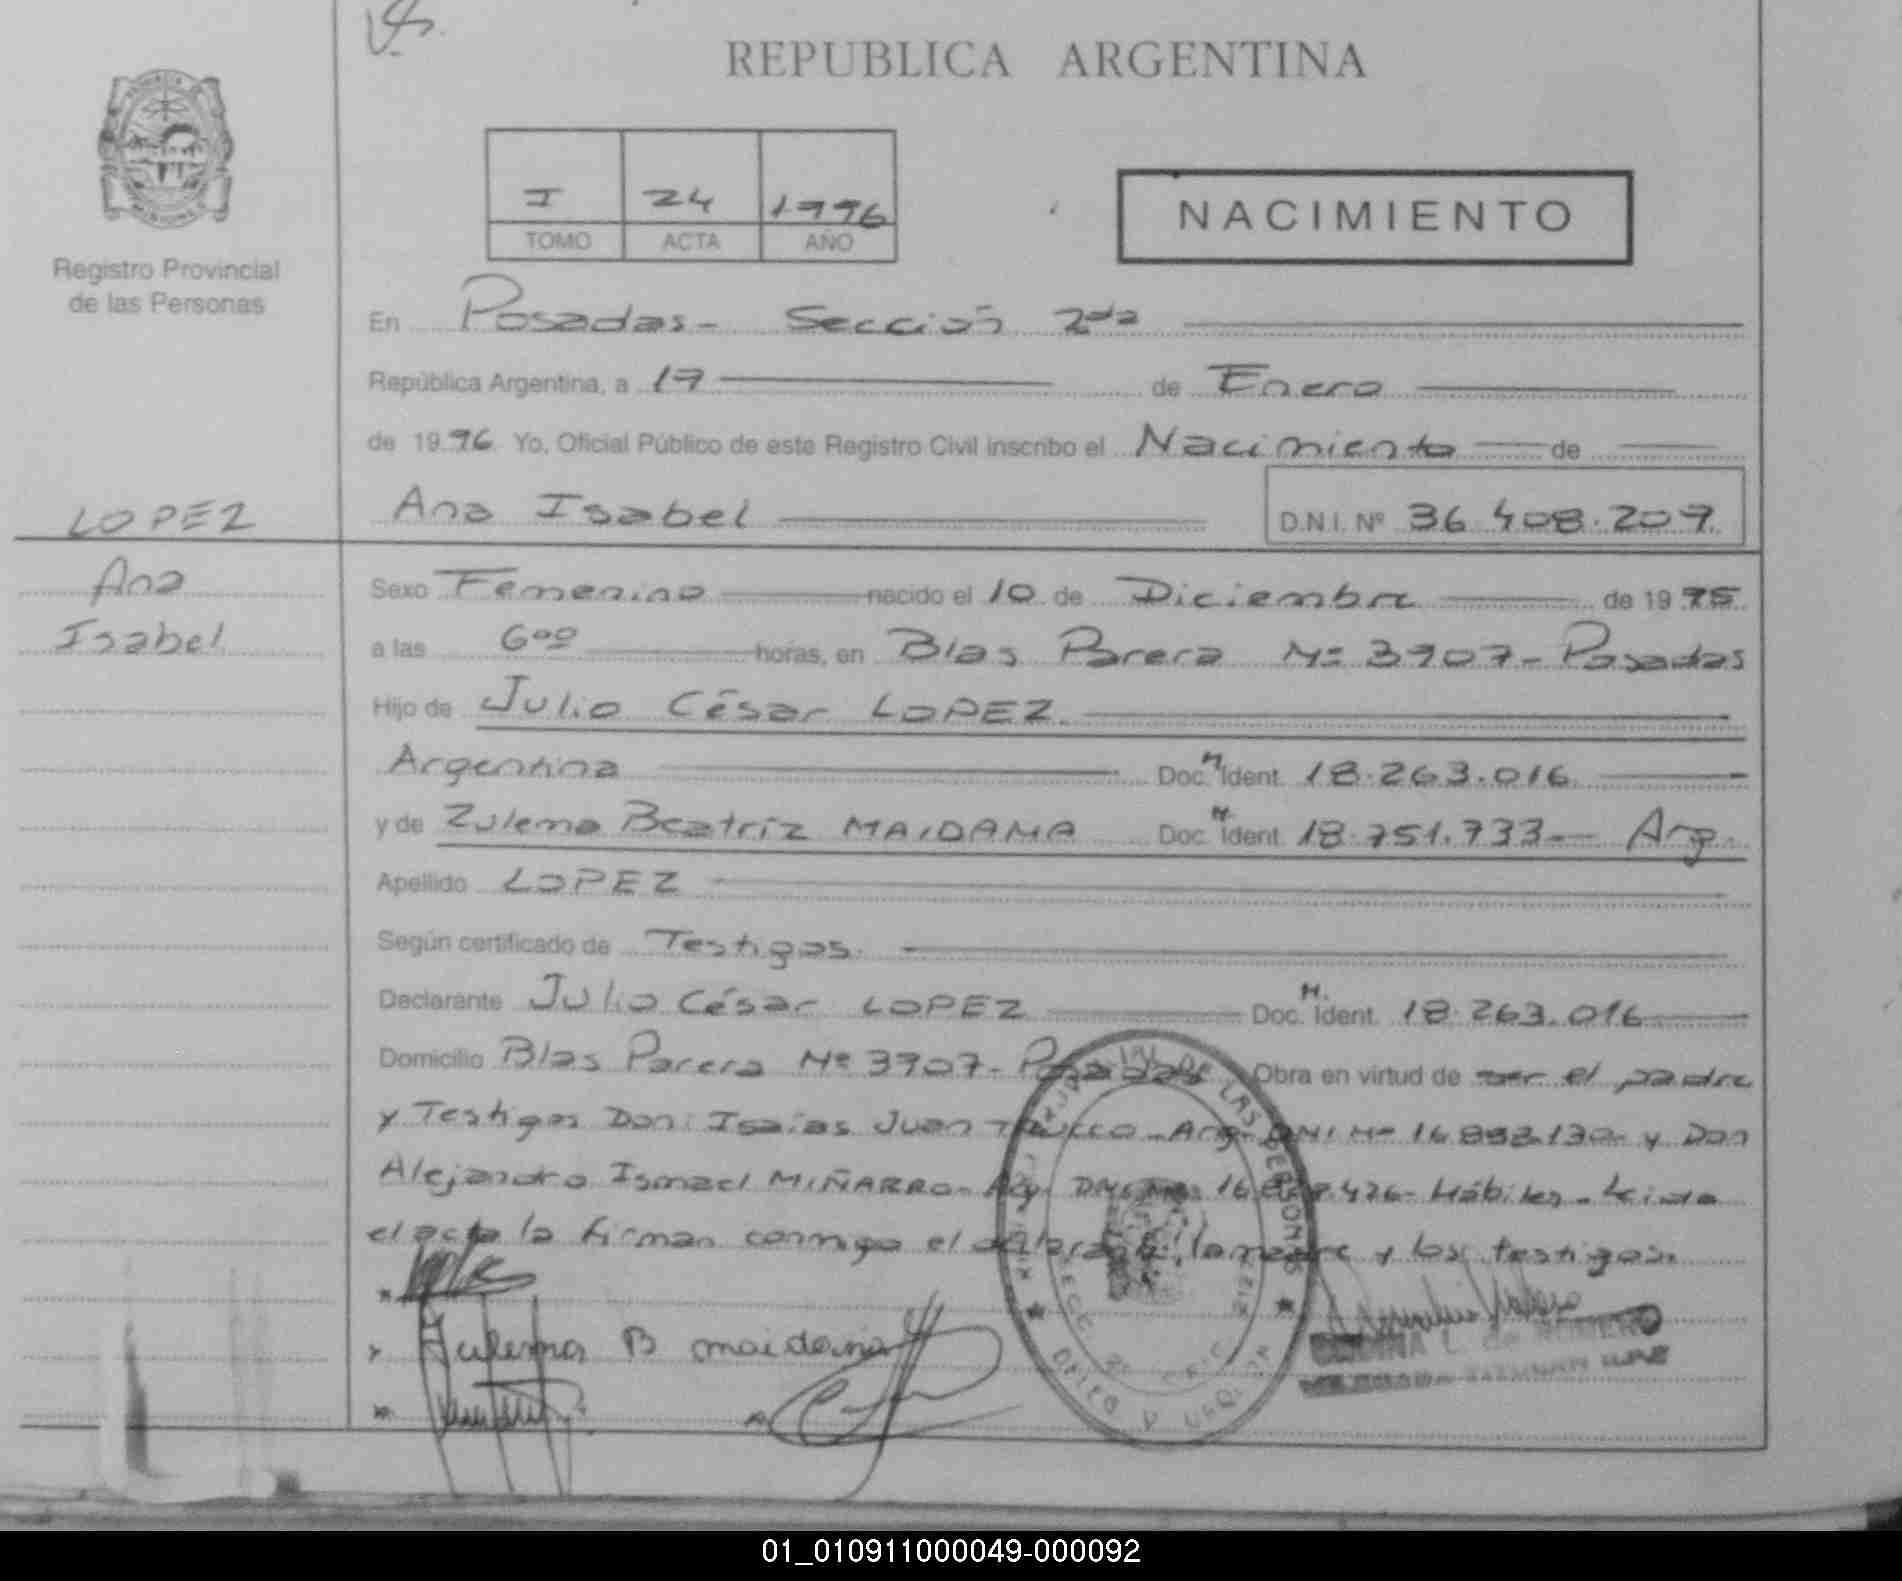 REPUBLICA ARGENTINA
I 24 1996
TOMO ACTA AÑO
NACIMIENTO
Registro Provincial
de las Personas
En Posadas - Sección 2da
República Argentina, a 17 de Enero
de 1996. Yo, Oficial Público de este Registro Civil inscribo el Nacimiento de
Ana Isabel D.N.I. Nº 36.408.207
LOPEZ
Ana
Isabel
Sexo Femenino nacido el 10 de Diciembre de 1995
a las 6⁰⁰ horas, en Blas Parera Nº 3907 - Posadas
Hijo de Julio César LOPEZ.
Argentina Doc. N. Ident. 18.263.016
y de Zulema Beatriz MAIDANA Doc. N. Ident. 18.751.733 - Arg.
Apellido LOPEZ
Según certificado de Testigos.
Declarante Julio César LOPEZ Doc. N. Ident. 18.263.016
Domicilio Blas Parera Nº 3907 - Posadas Obra en virtud de ser el padre
y Testigos Don: Isaías Juan Arg. DNI Nº y Don
Alejandro Ismael MIÑARRO - Arg. DNI Nº Hábiles - Leida
el acta la firman conmigo el declarante, la madre y los testigos.
Zulema B maidana
01_010911000049-000092